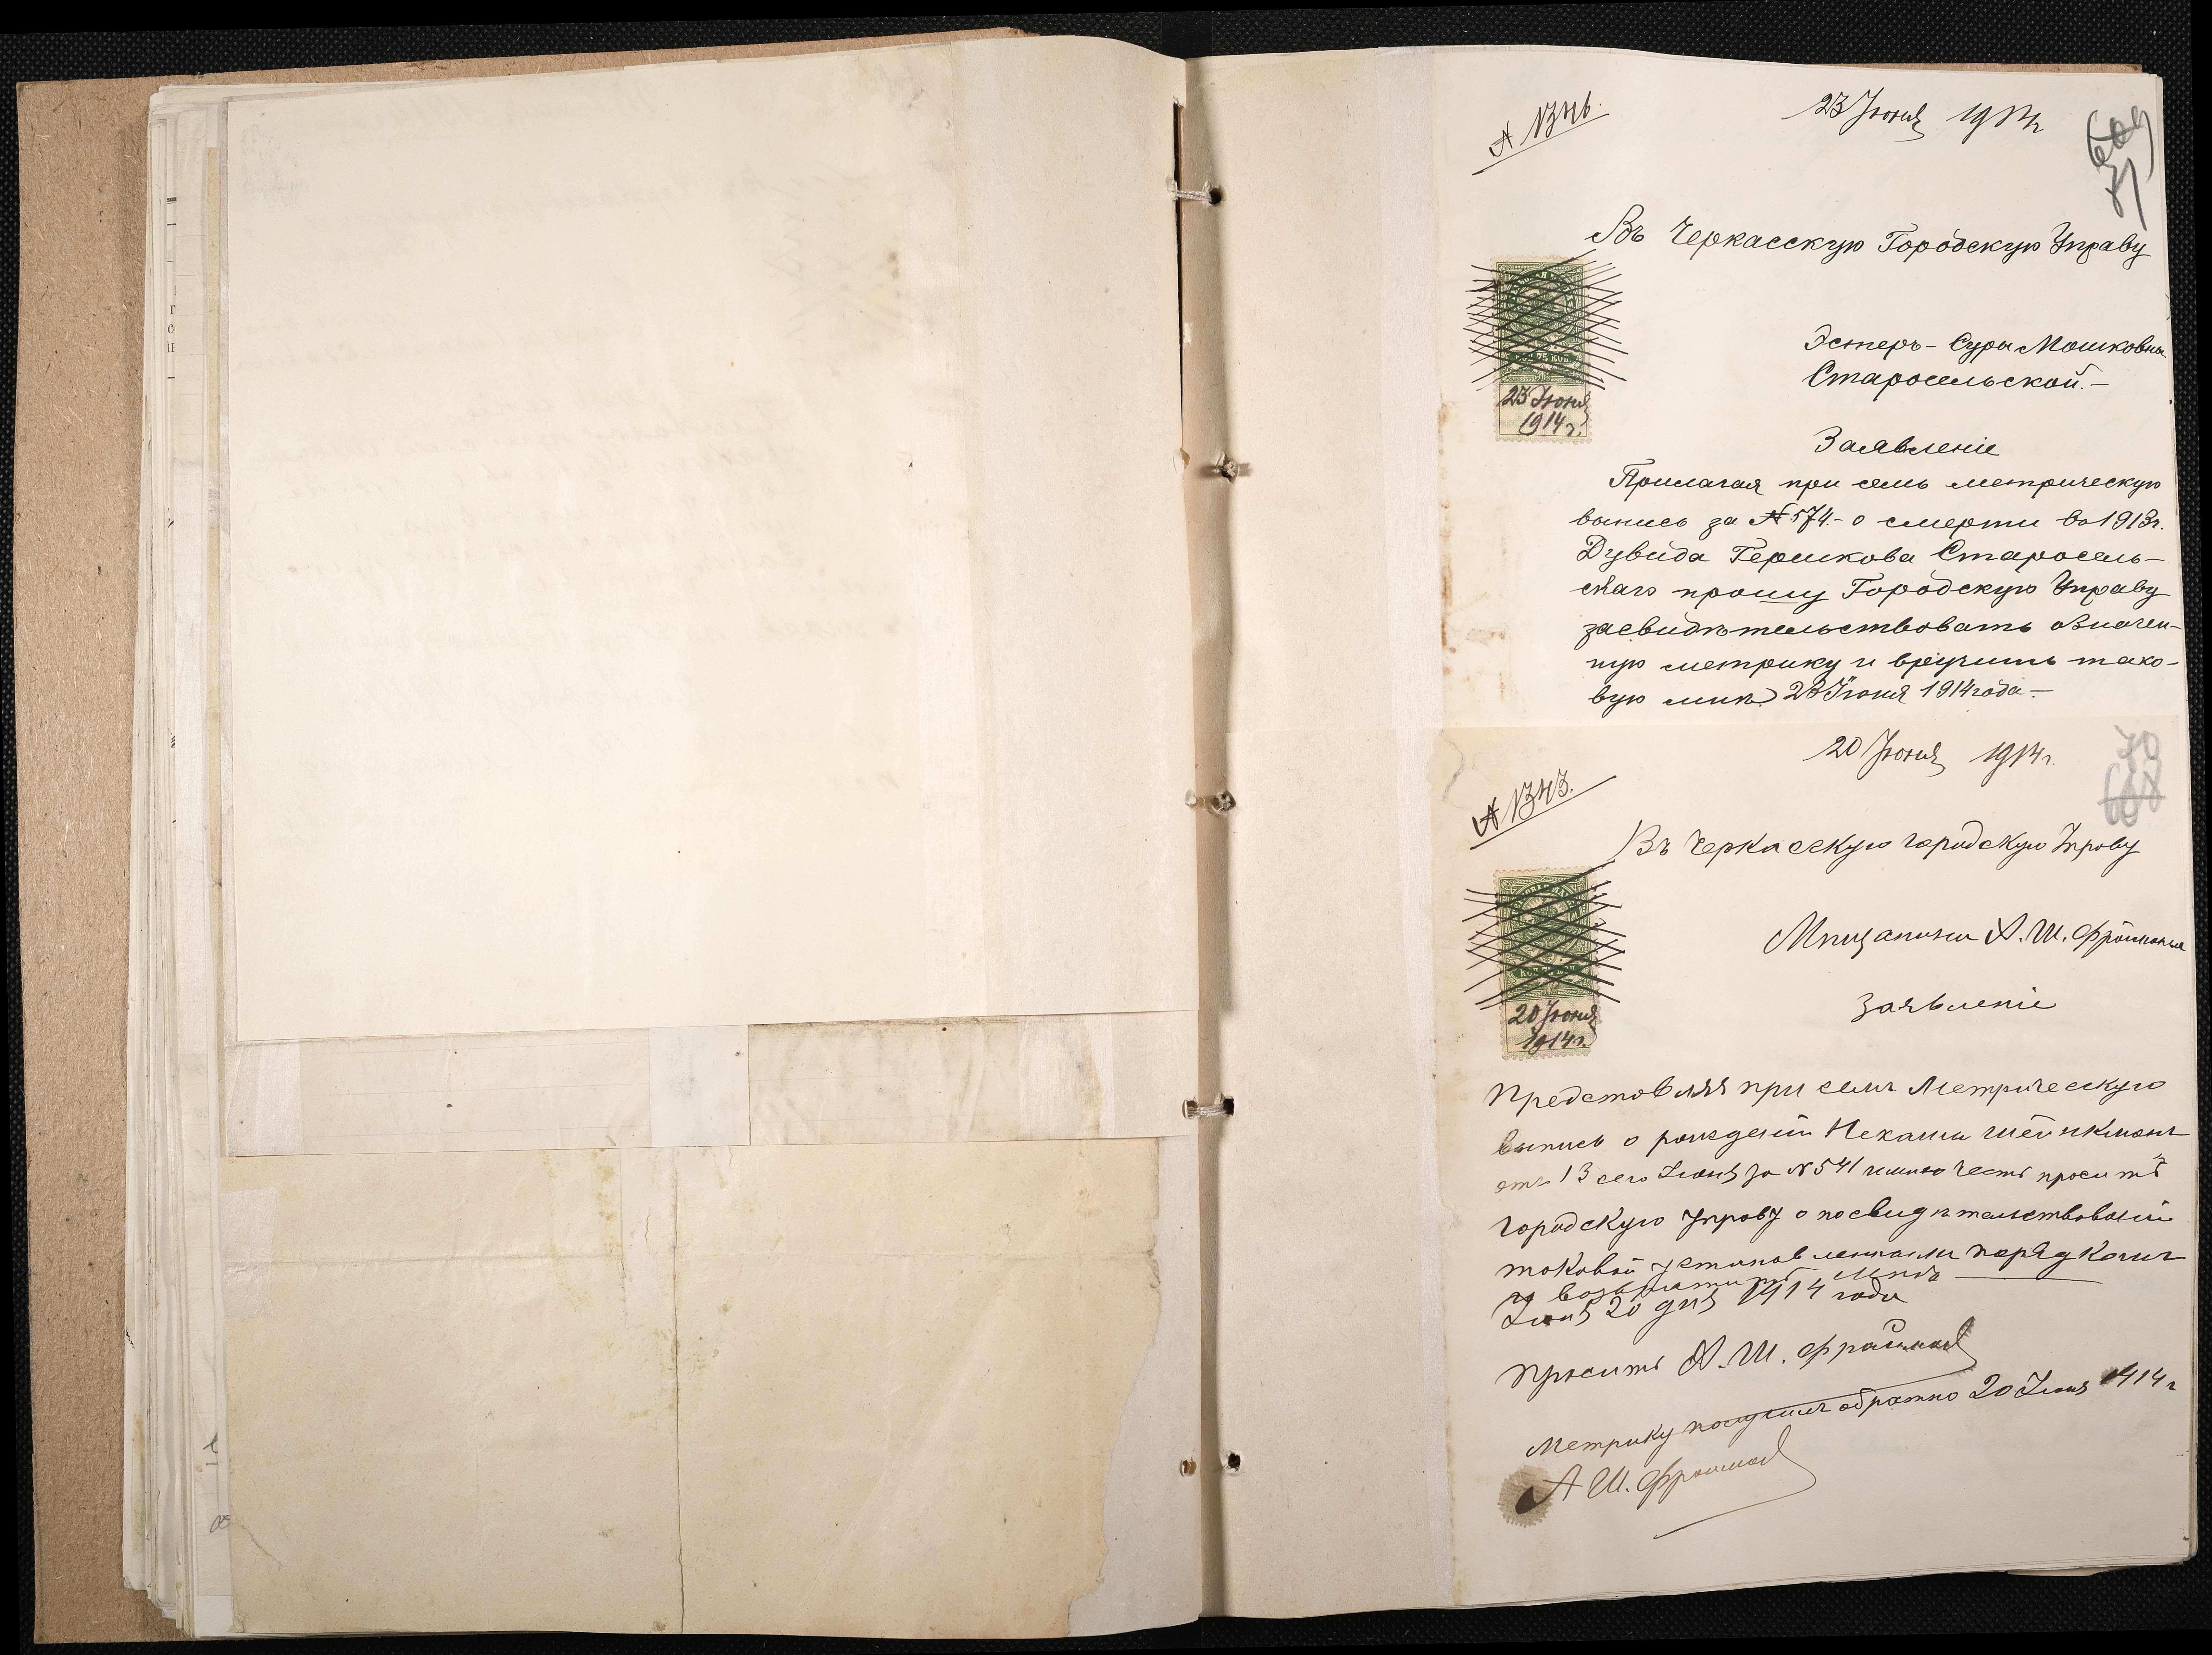 23 Іюня 1914г
Въ Черкасскую Городскую Управу
Эстеръ-Суры Мошковны
Старосельской.-
КОП 75 КОП.
23 Іюня
1914г.
Заявленіе
Прилагая при семъ метрическую
выпись за №574.- о смерти въ 1913г.
Дувида Гершкова Старосель-
скаго прошу Городскую Управу
засвидѣтельствовать означен-
ную метрику и вручить тако-
вую мнѣ. 23 Іюня 1914 года-
70
20 Іюня 1914г.
Въ Черкасскую городскую Управу
Мѣщанина А. Ш. Фраймана
20 Іюня
1914г.
Заявленіе
Представляя при семъ Метрическую
выпись о рожденіи Нехамы Шейнкманъ
отъ 13 сего Іюня за №541 имѣю честь просить
городскую Управу о посвидѣтельствованіи
таковой установленнымъ порядкомъ
и возвратить мнѣ
Іюня 20 дня 1914 года
Проситъ А. Ш. Фрайман
Метрику получилъ обратно 20 Іюня 1914г
А Ш. Фрайман